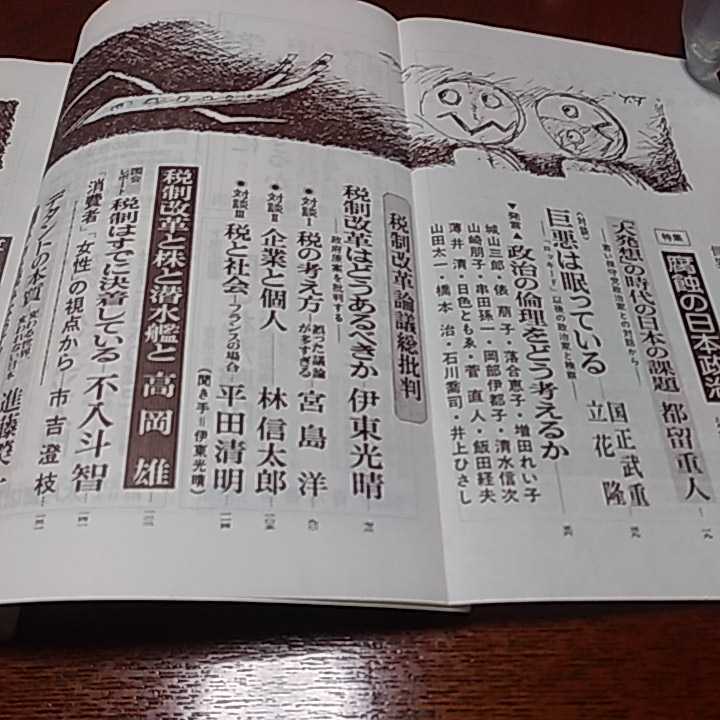 特集
腐蝕の日本政治
大発想の時代の日本の課題 都留重人
―若い保守党政治家との対話から―
〈対談〉
巨悪は眠っている 国正武重 立花隆
―「ロッキード」以後の政治家と検察―
▼発言▲ 政治の倫理をどう考えるか
城山三郎・俵 萠子・落合恵子・増田れい子
山崎朋子・串田孫一・岡部伊都子・清水信次
薄井 清・日色ともゑ・菅 直人・飯田経夫
山田太一・橋本 治・石川喬司・井上ひさし
税制改革論議総批判
税制改革はどうあるべきか 伊東光晴
―政府原案を批判する―
●対談Ⅰ 税の考え方―誤った議論が多すぎる 宮島 洋
●対談Ⅱ 企業と個人 林信太郎
●対談Ⅲ 税と社会―フランスの場合― 平田清明
(聞き手=伊東光晴)
税制改革と株と潜水艦と 高岡 雄
国会レポート 税制はすでに決着している 不入斗 智
「消費者」「女性」の視点から 市吉澄枝
デタントの本質 進藤榮一